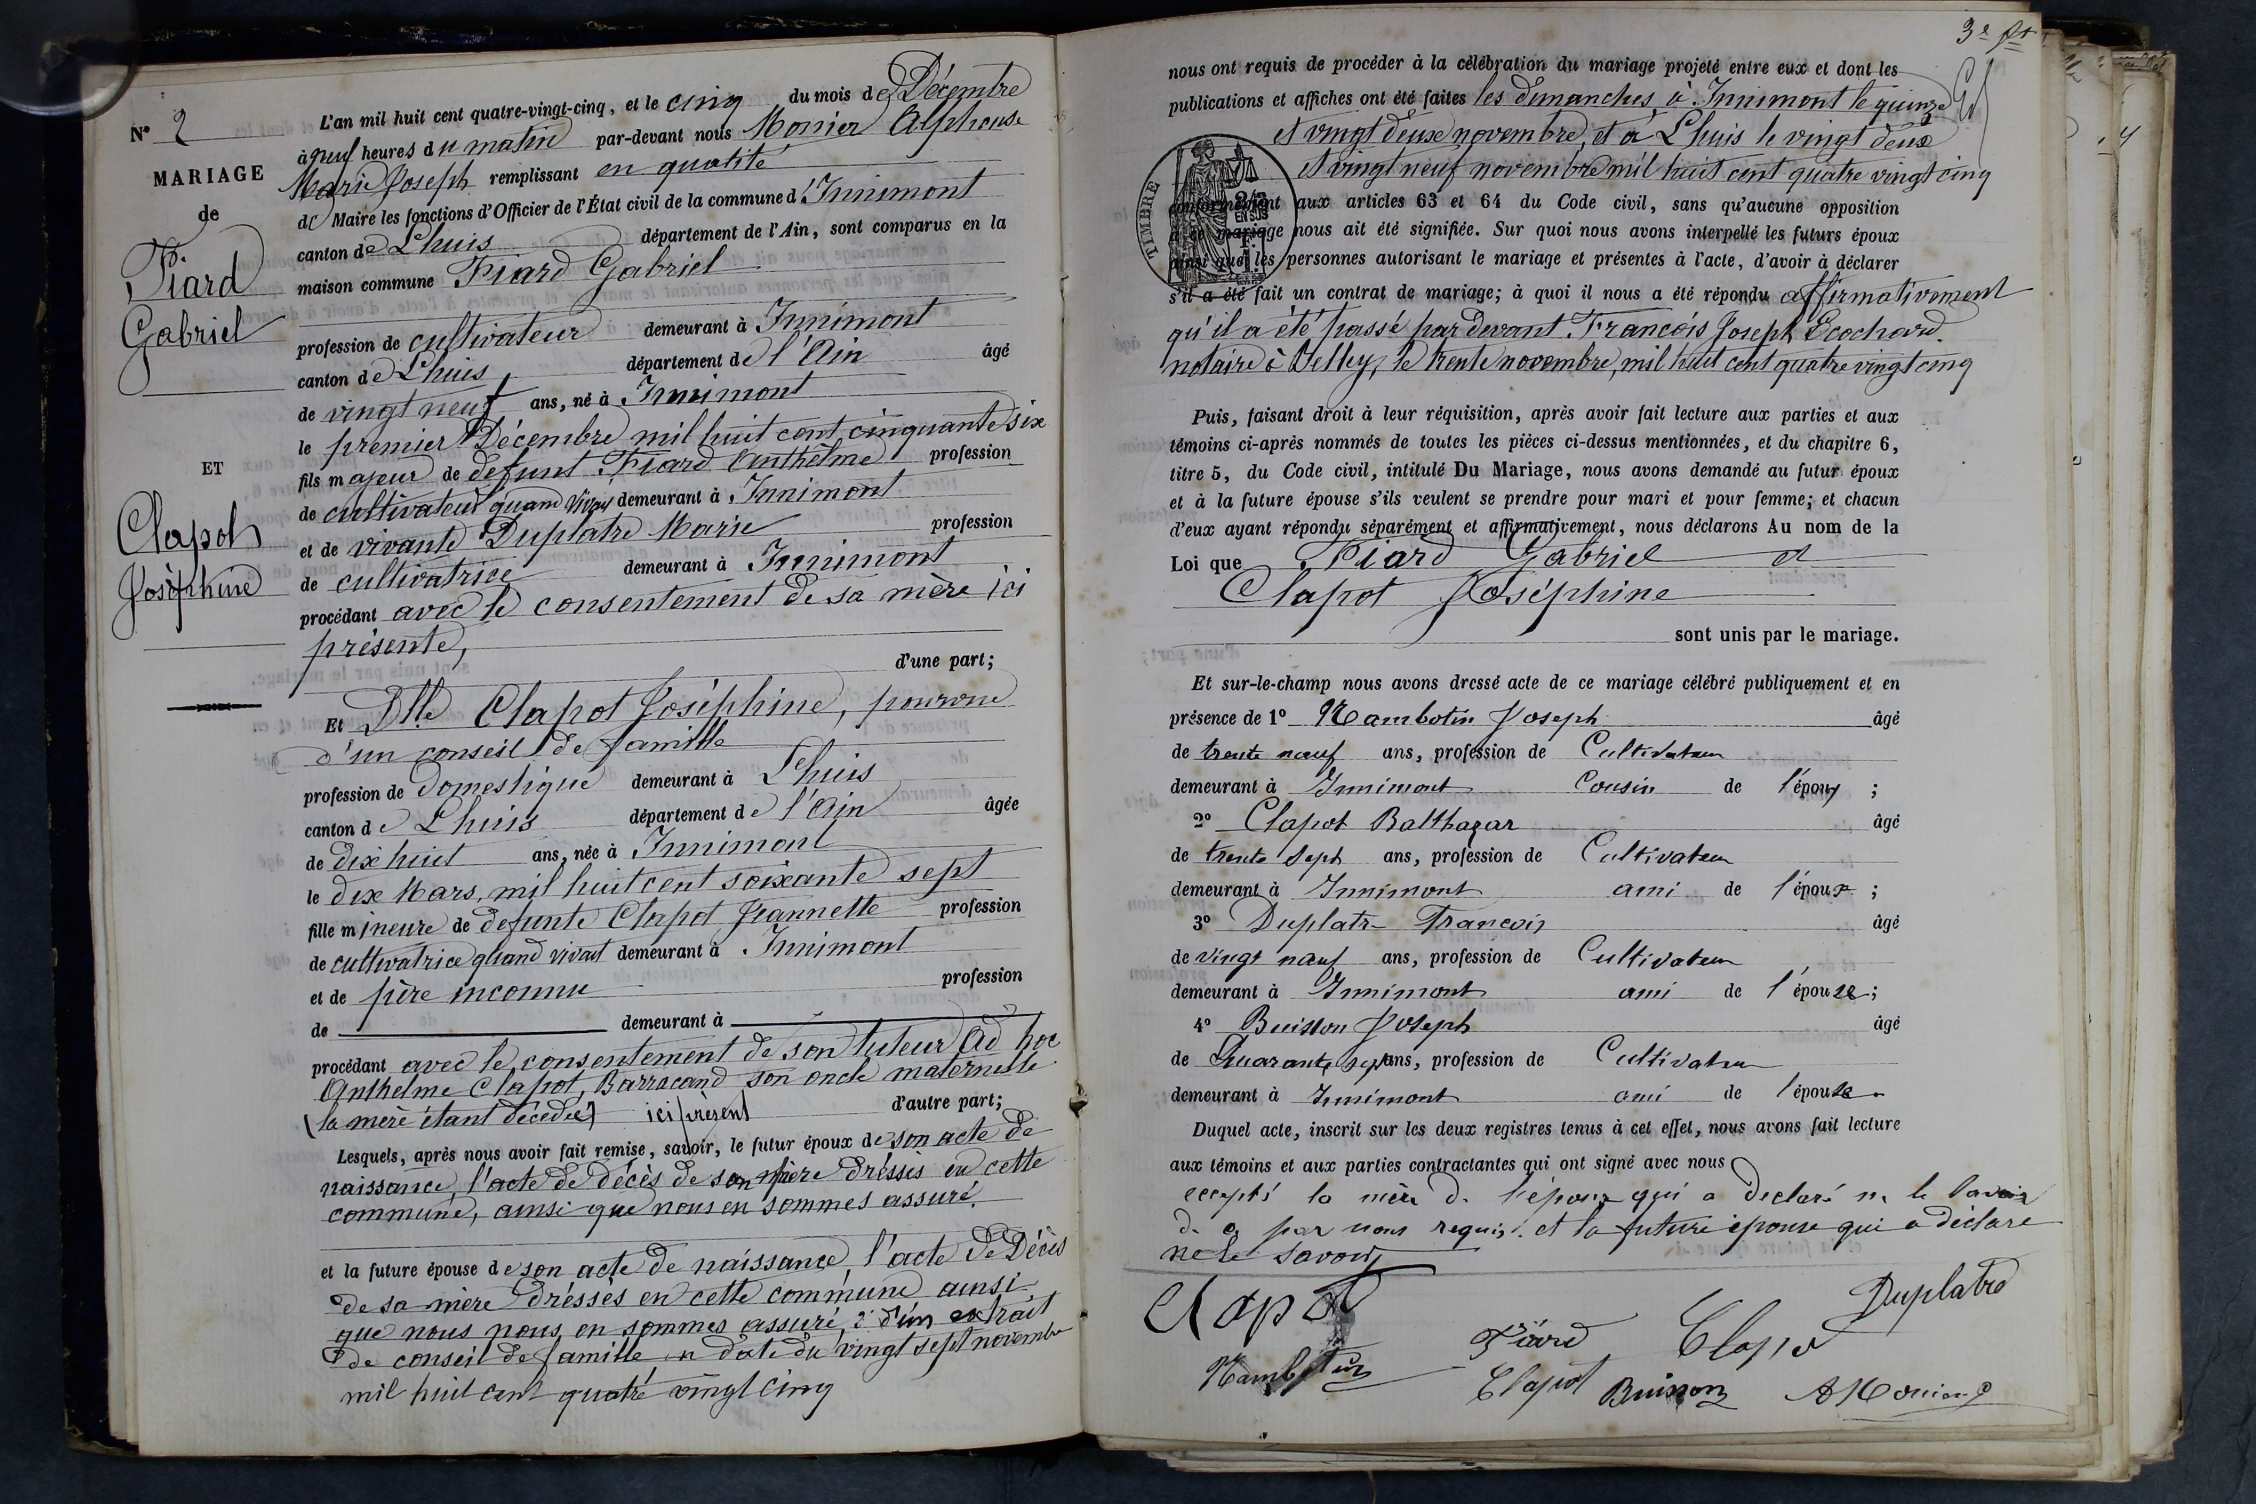 N° 2
MARIAGE
de
Fiard
Gabriel
ET
Clapot
Joséphine
L'an mil huit cent quatre-vingt-cinq, et le cinq du mois de Décembre
à neuf heures du matin par-devant nous Monier Alphonse
Marie Joseph remplissant en qualité
de Maire les fonctions d'Officier de l'État civil de la commune d'Innimont
canton de Lhuis département de l'Ain, sont comparus en la
maison commune Fiard Gabriel
profession de cultivateur demeurant à Innimont
canton de Lhuis département de l'Ain âgé
de vingt neuf ans, né à Innimont
le premier Décembre mil huit cent cinquante six
fils majeur de défunt Fiard Anthelme profession
de cultivateur quand vivait demeurant à Innimont
et de vivante Duplatre Marie profession
de cultivatrice demeurant à Innimont
procédant avec le consentement de sa mère ici
présente,
d'une part;
Et Dlle Clapot Joséphine, pourvue
d'un conseil de famille
profession de Domestique demeurant à Lhuis
canton de Lhuis département de l'Ain âgée
de dix huit ans, née à Innimont
le dix Mars, mil huit cent soixante sept
fille mineure de défunte Clapot Jeannette profession
de cultivatrice quand vivait demeurant à Innimont
et de père inconnu profession
de demeurant à
procédant avec le consentement de son tuteur ad hoc
Anthelme Clapot, Barracand son oncle maternelle
(la mère étant décédée) ici présent d'autre part;
Lesquels, après nous avoir fait remise, savoir, le futur époux de son acte de
naissance, l'acte de décès de son père dréssés en cette
commune, ainsi que nous en sommes assuré.
et la future épouse de son acte de naissance, l'acte de Décès
de sa mère dréssés en cette commune ainsi
que nous nous en sommes assuré, d'un extrait
de conseil de famille en date du vingt sept novembre
mil huit cent quatre vingt cinq
3e ft
nous ont requis de procéder à la célébration du mariage projeté entre eux et dont les
publications et affiches ont été faites les dimanches à Innimont le quinze
et vingt deux novembre, et à Lhuis le vingt deux
et vingt neuf novembre mil huit cent quatre vingt cinq
TIMBRE
2/10 EN SUS
conformément aux articles 63 et 64 du Code civil, sans qu'aucune opposition
à ce mariage nous ait été signifiée. Sur quoi nous avons interpellé les futurs époux
ainsi que les personnes autorisant le mariage et présentes à l'acte, d'avoir à déclarer
s'il a été fait un contrat de mariage; à quoi il nous a été répondu affirmativement
qu'il a été passé par devant François Joseph Ecochard
notaire à Belley, le trente novembre, mil huit cent quatre vingt cinq
Puis, faisant droit à leur réquisition, après avoir fait lecture aux parties et aux
témoins ci-après nommés de toutes les pièces ci-dessus mentionnées, et du chapitre 6,
titre 5, du Code civil, intitulé Du Mariage, nous avons demandé au futur époux
et à la future épouse s'ils veulent se prendre pour mari et pour femme; et chacun
d'eux ayant répondu séparément et affirmativement, nous déclarons Au nom de la
Loi que Fiard Gabriel et
Clapot Joséphine
sont unis par le mariage.
Et sur-le-champ nous avons dressé acte de ce mariage célébré publiquement et en
présence de 1° Mambotin Joseph âgé
de trente neuf ans, profession de Cultivateur
demeurant à Innimont Cousin de l'époux ;
2° Clapot Balthazar âgé
de trente sept ans, profession de Cultivateur
demeurant à Innimont ami de l'époux ;
3° Duplatre Francois âgé
de vingt neuf ans, profession de Cultivateur
demeurant à Innimont ami de l'épouse ;
4° Buisson Joseph âgé
de Quarante sept ans, profession de Cultivateur
demeurant à Innimont ami de l'épouse
Duquel acte, inscrit sur les deux registres tenus à cet effet, nous avons fait lecture
aux témoins et aux parties contractantes qui ont signé avec nous
excepté la mère de l'époux qui a declaré ne le savoir
de ce par nous requis. et la future épouse qui a déclare
ne le savoir
Clapot Duplatre
Fiard Clapot
Mambotin Clapot Buisson A Monier